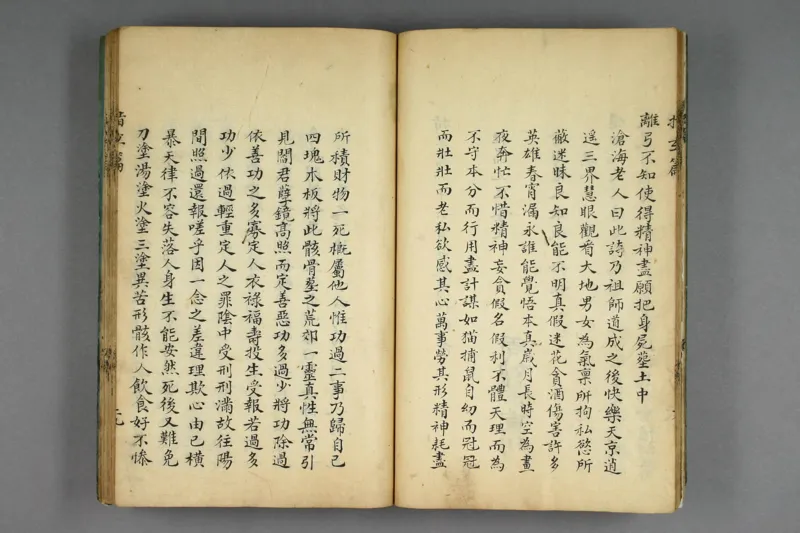 指玄篇
離弓不知使得精神盡願把身屍墓土中
滄海老人曰此詩乃祖師道成之後快樂天京逍
遥三界慧眼觀看大地男女為氣稟所拘私慾所
蔽迷昧良知良能不明真假迷花貪酒傷害許多
英雄春宵漏永誰能覺悟本真歲月長時空為晝
夜奔忙不惜精神妄貪假名假利不體天理而為
不守本分而行用盡計謀如猫捕鼠自幼而冠冠
而壯壯而老私欲感其心萬事勞其形精神耗盡
所積財物一死概屬他人惟功過二事乃歸自己
四塊木板將此骸骨墓之荒郊一靈真性無常引
見閻君孽鏡高照而定善惡功多過少將功除過
依善功之多寡定人衣祿福壽投生受報若過多
功少依過輕重定人之罪陰中受刑刑滿故往陽
間照過還報嗟乎因一念之差違理欺心由己橫
暴天律不容失落人身生不能安然死後又難免
刀塗湯塗火塗三塗異苦形骸作人飲食好不慘
指玄篇